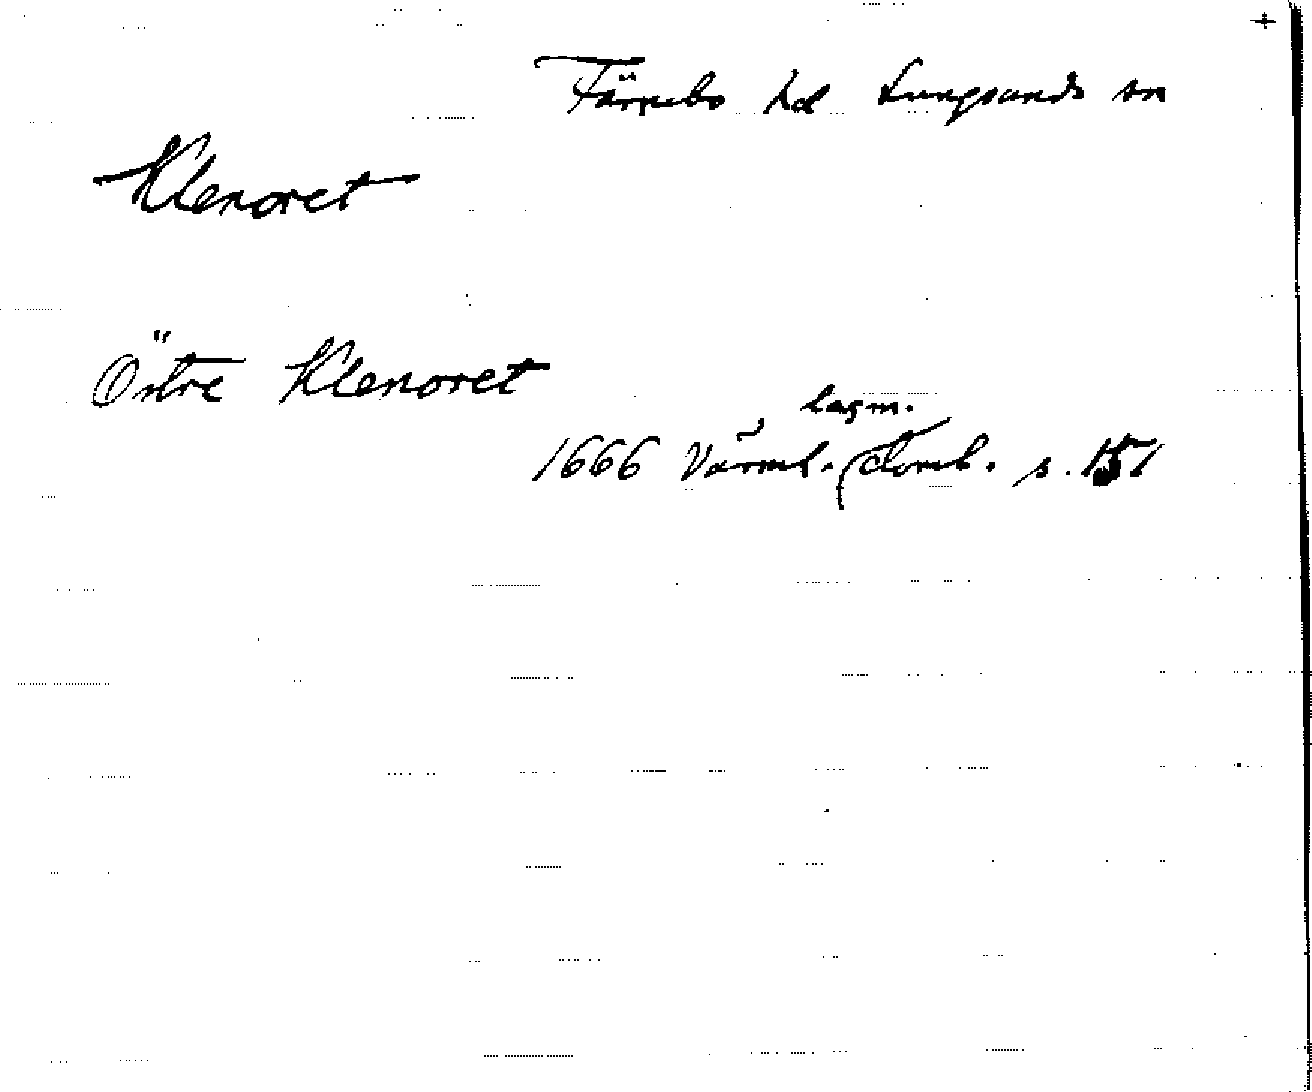 Färnebo hd Lungsunds sn
Klenoret
Östre Klenoret
lagm.
1666 Värml. domb. s. 151